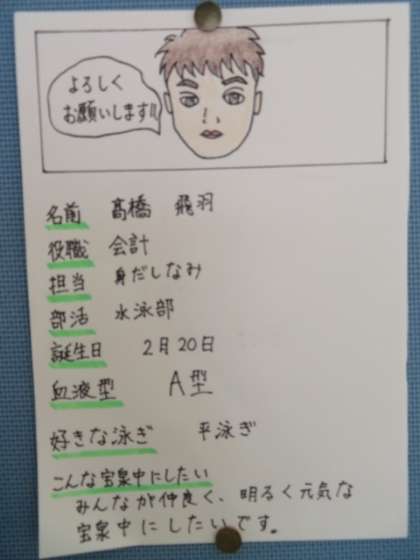 よろしく
お願いします!!
名前 髙橋 飛羽
役職 会計
担当 身だしなみ
部活 水泳部
誕生日 2月20日
血液型 A型
好きな泳ぎ 平泳ぎ
こんな宝泉中にしたい
みんなが仲良く、明るく元気な
宝泉中にしたいです。